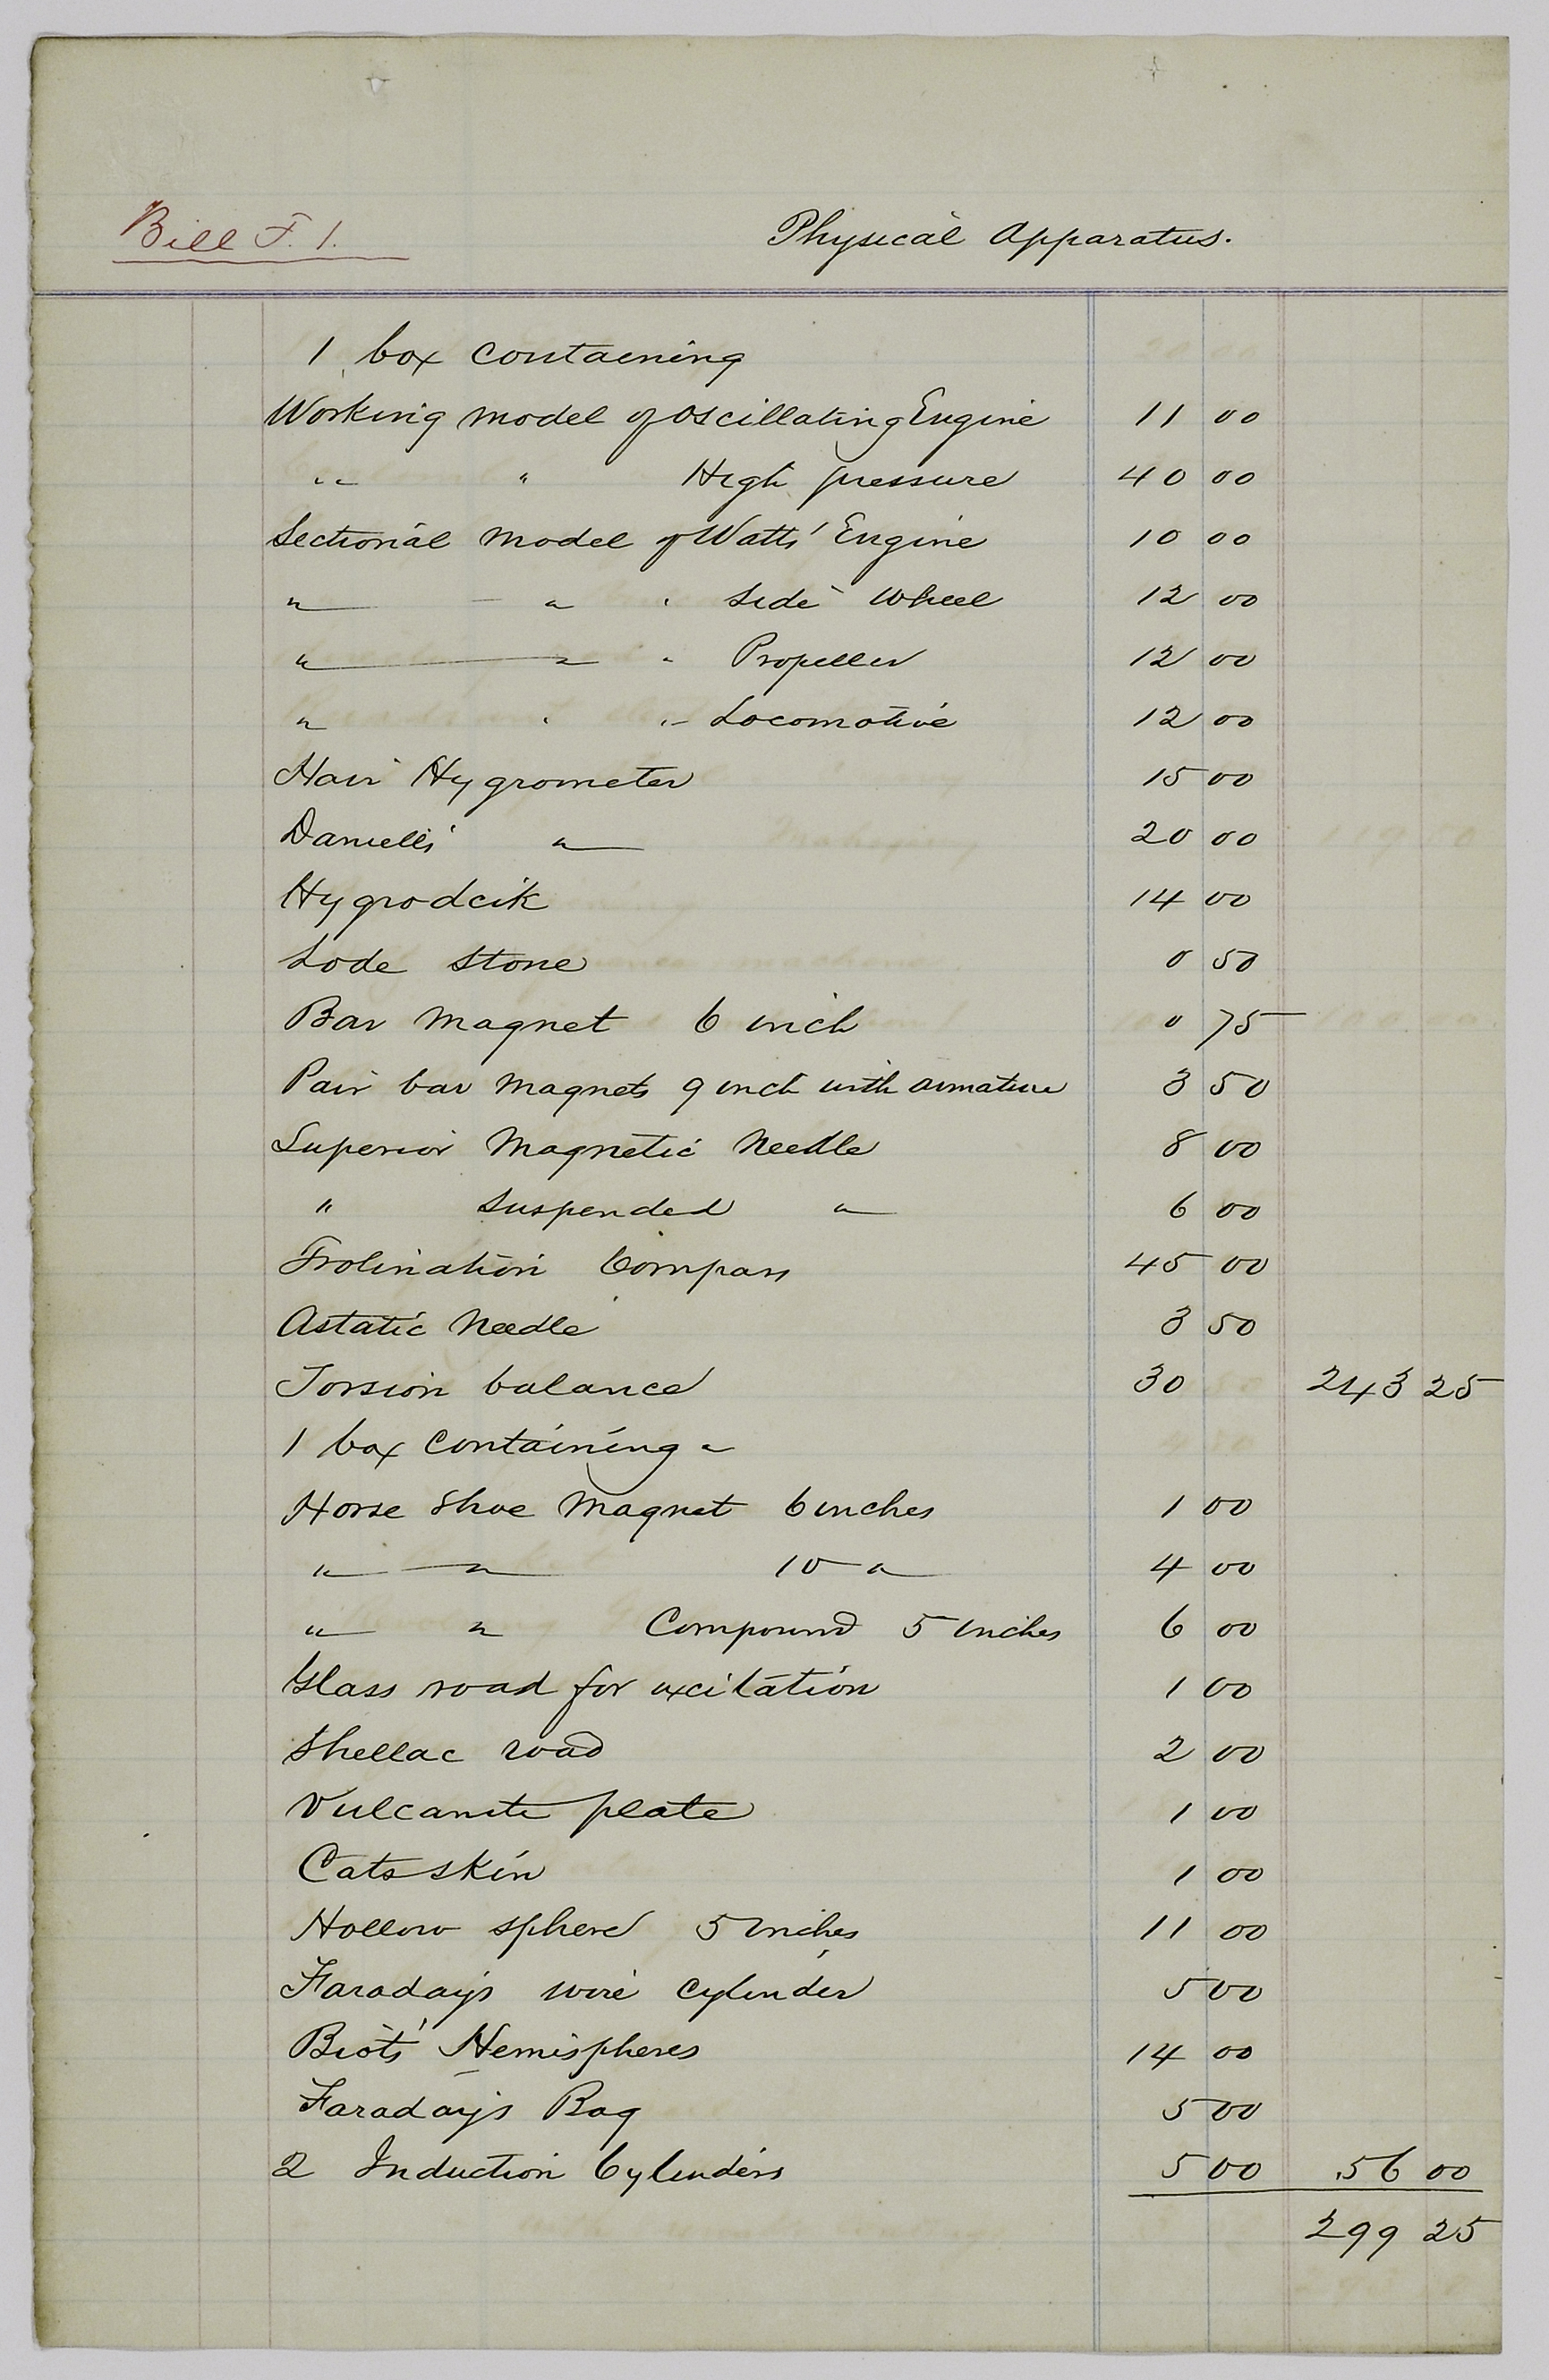 Bill F. 1.
Physical Apparatus.
1 box containing
Working model of Oscillating Engine 11 00
" " High pressure 40 00
Sectional Model of Watts' Engine 10 00
" " " Side Wheel 12 00
" " " Propeller 12 00
" " " Locomotive 12 00
Hair Hygrometer 15 00
Daniell's " 20 00
Hygrodeik 14 00
Lode Stone 0 50
Bar Magnet 6 inch 0 75
Pair bar Magnets 9 inch with armature 3 50
Superior Magnetic Needle 8 00
" Suspended " 6 00
Compass 45 00
Astatic Needle 3 50
Torsion balance 30 243 25
1 box containing "
Horse Shoe Magnet 6 inches 1 00
" " 10 " 4 00
" " Compound 5 inches 6 00
Glass road for excitation 1 00
Shellac road 2 00
Vulcanite plate 1 00
Cats skin 1 00
Hollow sphere 5 inches 11 00
Faraday's wire cylinder 5 00
Biot's Hemispheres 14 00
Faraday's Bag 5 00
2 Induction Cylinders 5 00 56 00
299 25